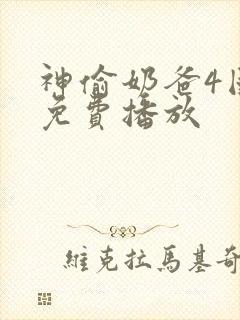 神偷奶爸4
免費播放
維克拉馬基奇